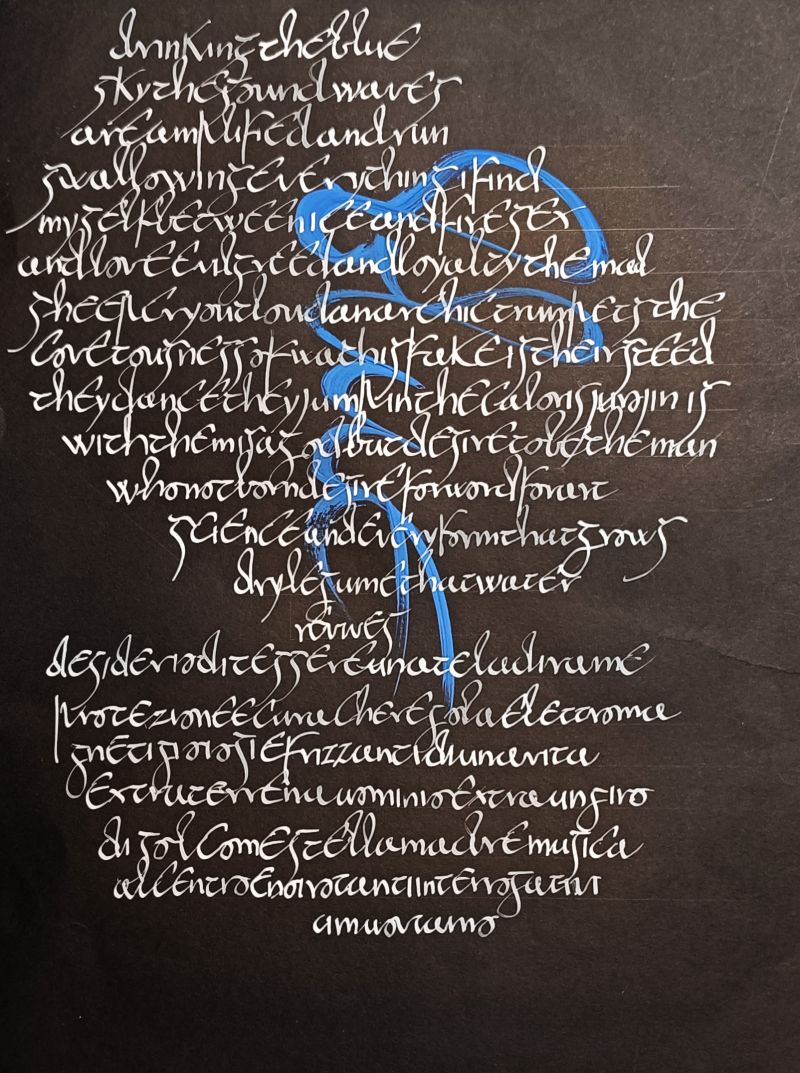 drinking the blue
sky the sound waves
are amplified and run
swallowing everything i find
myself between ice and fire sex
and love evil greed and loyalty the mad
sheep cry out loud anarchic trumpets the
covetousness of wath is fake is their steed
they dance they jump in the is
with them is a god but desire to be the man
who not born desire for word for art
science and every form that grows
dry legume that water
desiderio di tessere una tela di rame
protezione e luna che regola elettroma
gneti frizzanti di umanita
extraterrena uomini o extra un giro
di sol come stella madre musica
al centro e noi rotanti interrogativi
amuoviamo